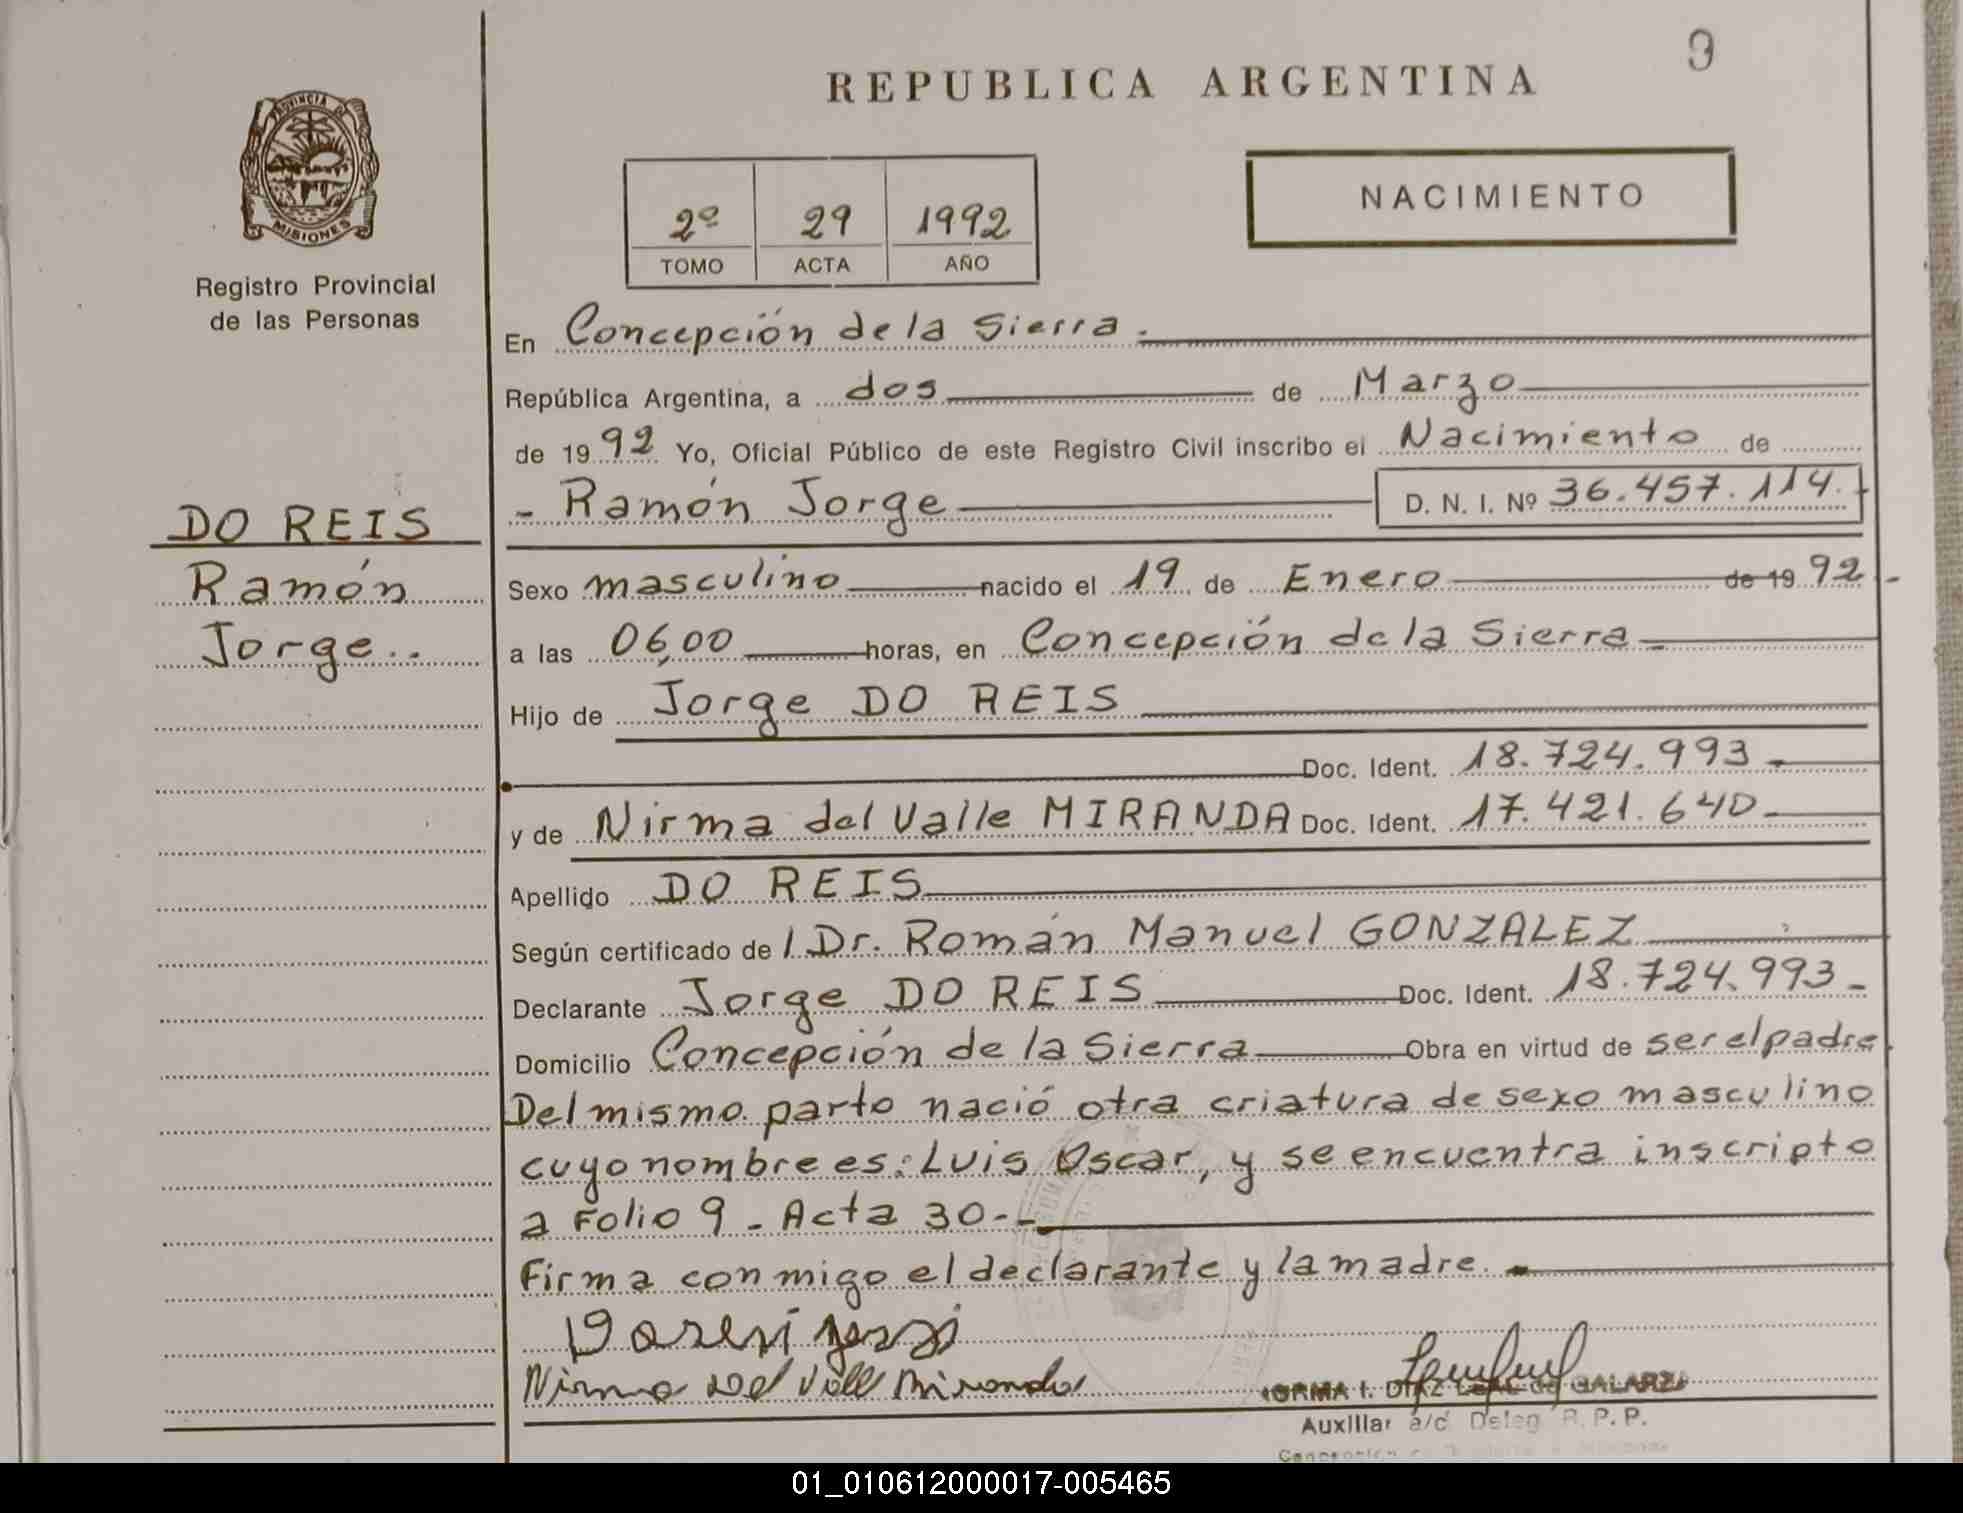 9
REPUBLICA ARGENTINA
PROVINCIA DE
MISIONES
Registro Provincial
de las Personas
2º 29 1992
TOMO ACTA AÑO
NACIMIENTO
En Concepción de la Sierra.
República Argentina, a dos de Marzo
de 1992 Yo, Oficial Público de este Registro Civil inscribo el Nacimiento de
- Ramón Jorge D. N. I. Nº 36.457.114.-
DO REIS
Ramón
Jorge..
Sexo masculino nacido el 19 de Enero de 1992-
a las 06,00 horas, en Concepción de la Sierra-
Hijo de Jorge DO REIS
Doc. Ident. 18.724.993-
y de Nirma del Valle MIRANDA Doc. Ident. 17.421.640-
Apellido DO REIS
Según certificado de / Dr. Román Manuel GONZALEZ
Declarante Jorge DO REIS Doc. Ident. 18.724.993-
Domicilio Concepción de la Sierra Obra en virtud de ser el padre
Del mismo parto nació otra criatura de sexo masculino
cuyo nombre es: Luis Oscar, y se encuentra inscripto
a Folio 9 - Acta 30.--
Firma conmigo el declarante y la madre.-
Nirma Del Valle Miranda
NORMA I. DIAZ LEAL de GALARZA
Auxiliar a/c Deleg. R. P. P.
01_010612000017-005465